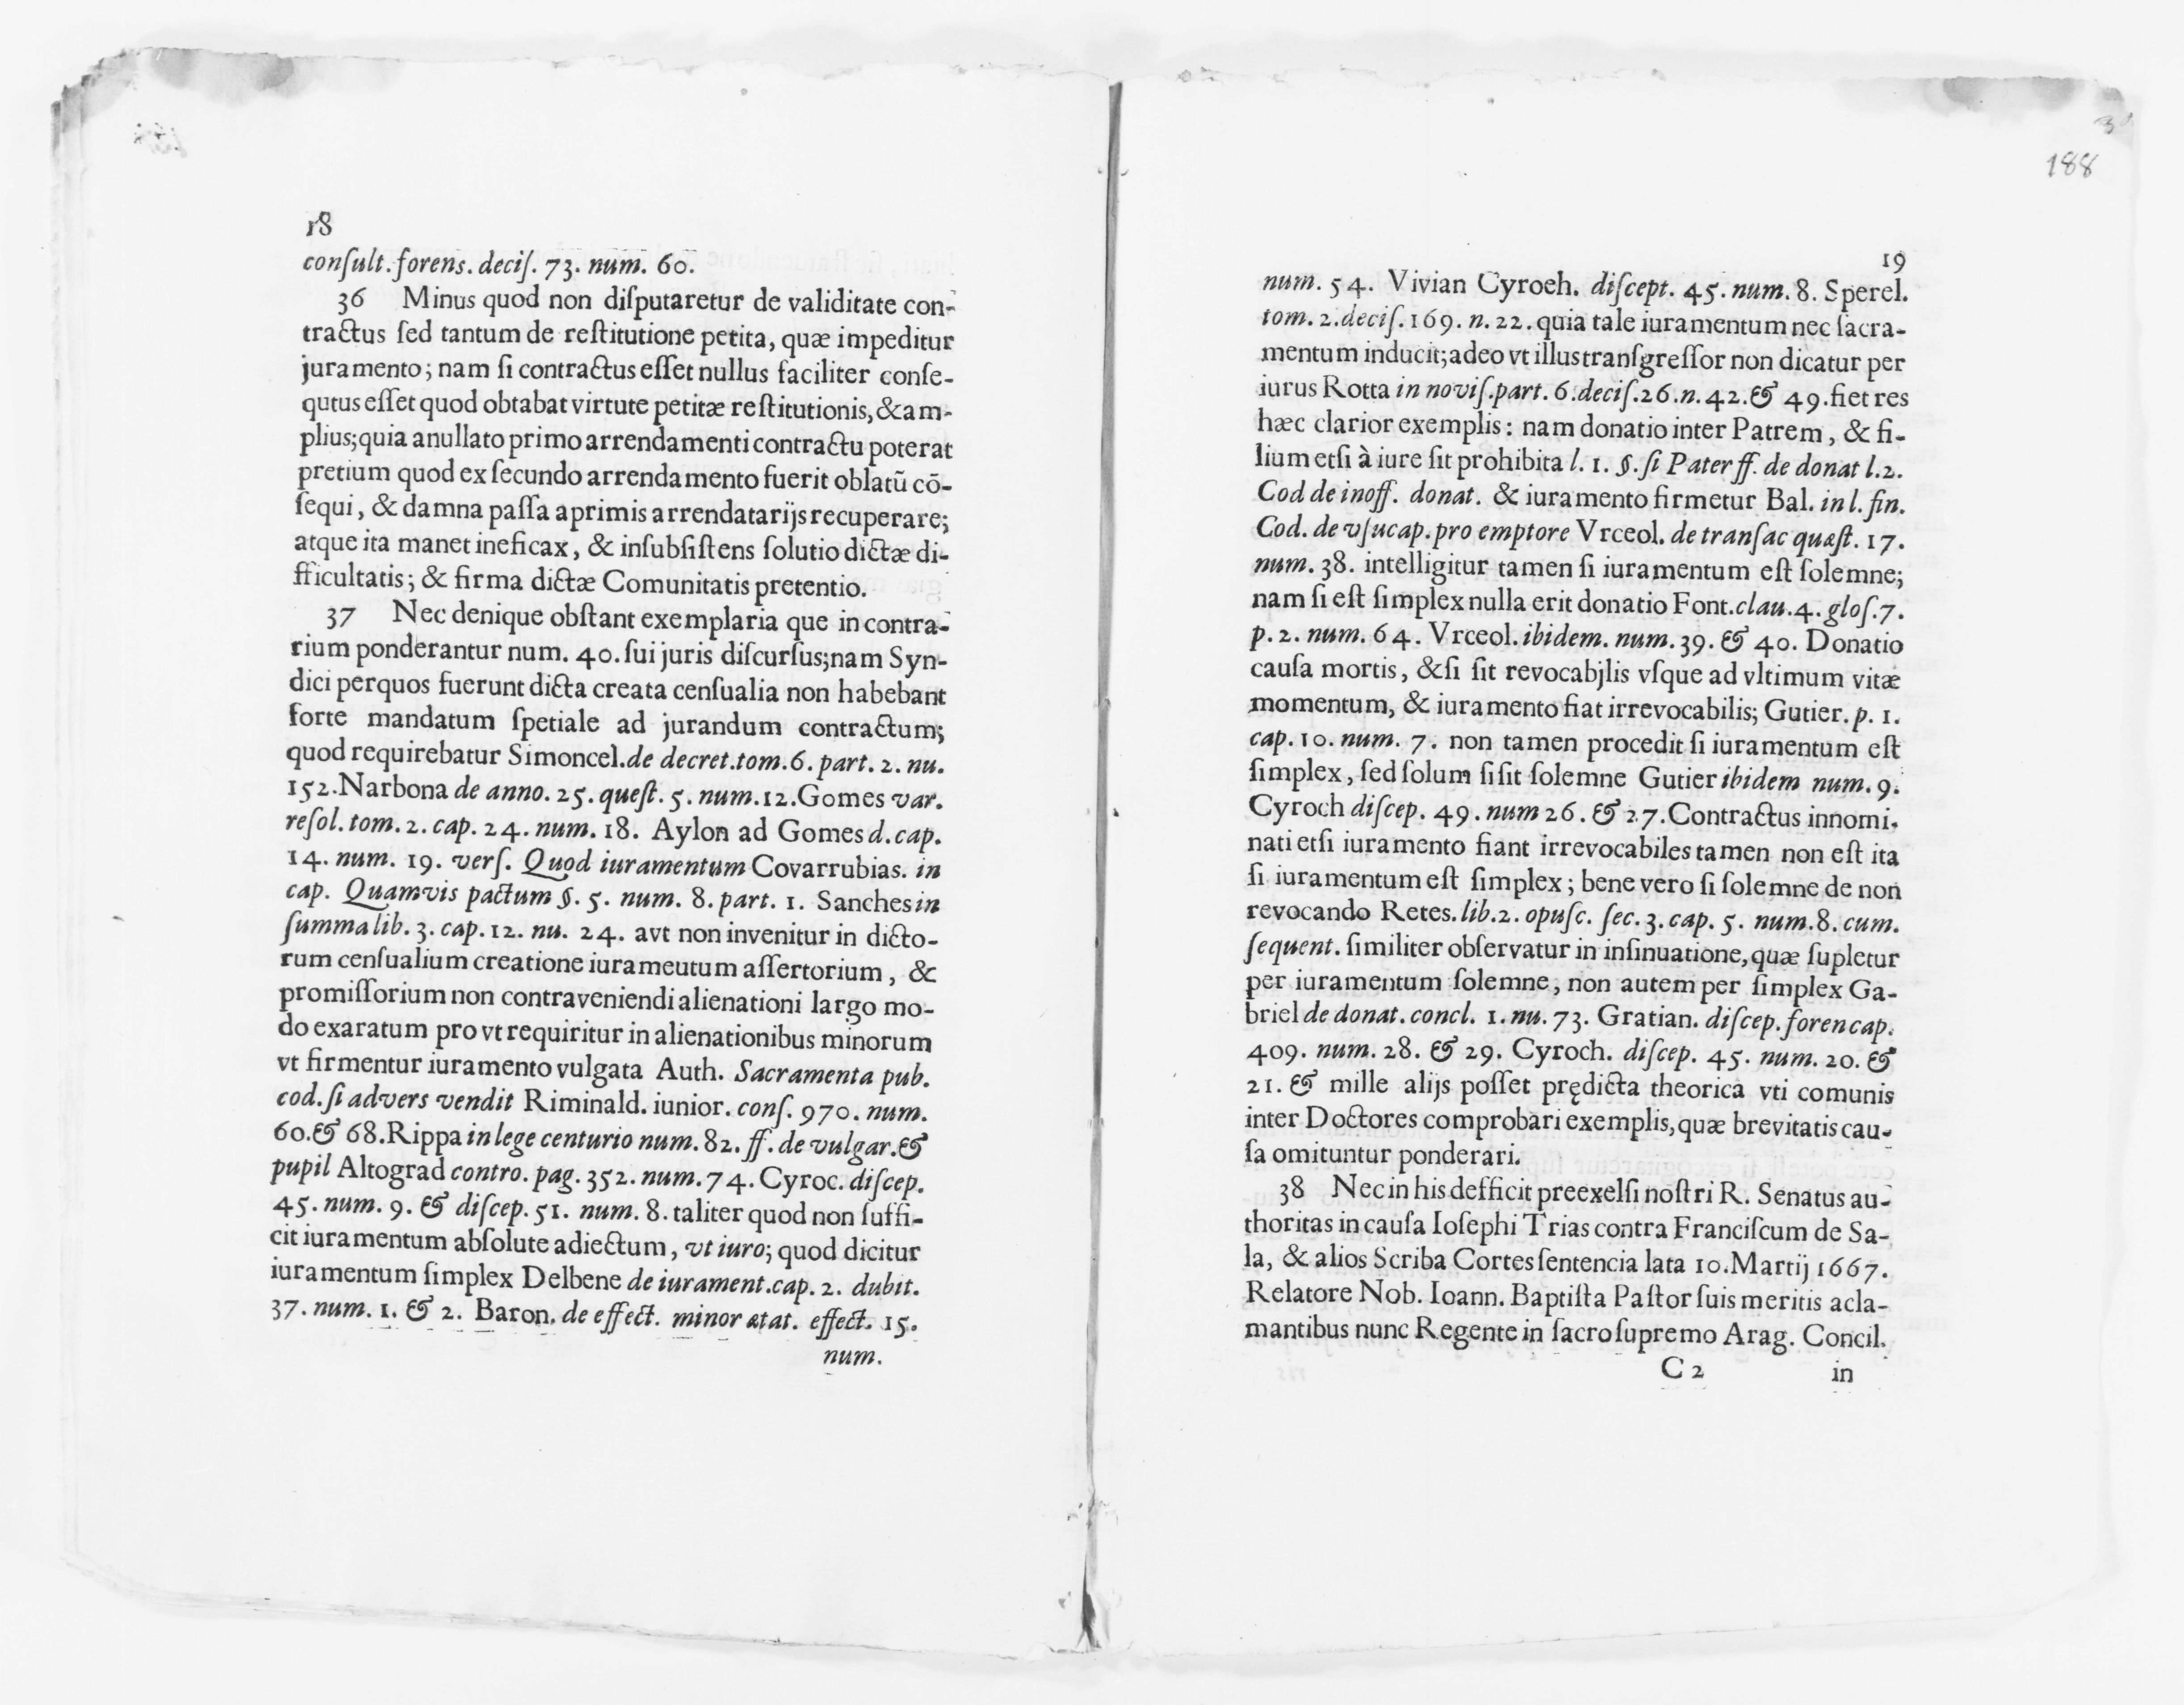 18
conſult. forens. deciſ. 73. num. 60.
36 Minus quod non diſputaretur de validitate con-
tractus ſed tantum de reſtitutione petita, quæ impeditur
juramento; nam ſi contractus eſſet nullus faciliter conſe-
qutus eſſet quod obtabat virtute petitæ reſtitutionis, & am-
plius; quia anullato primo arrendamenti contractu poterat
pretium quod ex ſecundo arrendamento fuerit oblatũ cõ-
ſequi, & damna paſſa a primis arrendatarijs recuperare;
atque ita manet ineficax, & inſubſiſtens ſolutio dictæ di-
fficultatis; & firma dictæ Comunitatis pretentio.
37 Nec denique obſtant exemplaria que in contra-
rium ponderantur num. 40. ſui juris diſcurſus; nam Syn-
dici perquos fuerunt dicta creata cenſualia non habebant
forte mandatum ſpetiale ad jurandum contractum;
quod requirebatur Simoncel. de decret. tom. 6. part. 2. nu.
152. Narbona de anno. 25. queſt. 5. num. 12. Gomes var.
reſol. tom. 2. cap. 24. num. 18. Aylon ad Gomes d. cap.
14. num. 19. verſ. Quod iuramentum Covarrubias. in
cap. Quamvis pactum §. 5. num. 8. part. 1. Sanches in
ſumma lib. 3. cap. 12. nu. 24. avt non invenitur in dicto-
rum cenſualium creatione iurameutum aſſertorium, &
promiſſorium non contraveniendi alienationi largo mo-
do exaratum pro vt requiritur in alienationibus minorum
vt firmentur iuramento vulgata Auth. Sacramenta pub.
cod. ſi advers vendit Riminald. iunior. conſ. 970. num.
60. & 68. Rippa in lege centurio num. 82. ff. de vulgar. &
pupil Altograd contro. pag. 352. num. 74. Cyroc. diſcep.
45. num. 9. & diſcep. 51. num. 8. taliter quod non ſuffi-
cit iuramentum abſolute adiectum, vt iuro; quod dicitur
iuramentum ſimplex Delbene de iurament. cap. 2. dubit.
37. num. 1. & 2. Baron. de effect. minor ætat. effect. 15.
num.
188
19
num. 54. Vivian Cyroeh. diſcept. 45. num. 8. Sperel.
tom. 2. deciſ. 169. n. 22. quia tale iuramentum nec ſacra-
mentum inducit; adeo vt illus tranſgreſſor non dicatur per
iurus Rotta in noviſ. part. 6. deciſ. 26. n. 42. & 49. fiet res
hæc clarior exemplis: nam donatio inter Patrem, & fi-
lium etſi à iure ſit prohibita l. 1. §. ſi Pater ff. de donat l. 2.
Cod de inoff. donat. & iuramento firmetur Bal. in l. fin.
Cod. de vſucap. pro emptore Vrceol. de tranſac quæſt. 17.
num. 38. intelligitur tamen ſi iuramentum eſt ſolemne;
nam ſi eſt ſimplex nulla erit donatio Font. clau. 4. gloſ. 7.
p. 2. num. 64. Vrceol. ibidem. num. 39. & 40. Donatio
cauſa mortis, & ſi ſit revocabjlis vſque ad vltimum vitæ
momentum, & iuramento fiat irrevocabilis; Gutier. p. 1.
cap. 10. num. 7. non tamen procedit ſi iuramentum eſt
ſimplex, ſed ſolum ſi ſit ſolemne Gutier ibidem num. 9.
Cyroch diſcep. 49. num 26. & 27. Contractus innomi.
nati etſi iuramento fiant irrevocabiles tamen non eſt ita
ſi iuramentum eſt ſimplex; bene vero ſi ſolemne de non
revocando Retes. lib. 2. opuſc. ſec. 3. cap. 5. num. 8. cum.
ſequent. ſimiliter obſervatur in inſinuatione, quæ ſupletur
per iuramentum ſolemne, non autem per ſimplex Ga-
briel de donat. concl. 1. nu. 73. Gratian. diſcep. foren cap.
409. num. 28. & 29. Cyroch. diſcep. 45. num. 20. &
21. & mille alijs poſſet prędicta theorica vti comunis
inter Doctores comprobari exemplis, quæ brevitatis cau-
ſa omituntur ponderari.
38 Nec in his defficit preexelſi noſtri R. Senatus au-
thoritas in cauſa Ioſephi Trias contra Franciſcum de Sa-
la, & alios Scriba Cortes ſentencia lata 10. Martij 1667.
Relatore Nob. Ioann. Baptiſta Paſtor ſuis meritis acla-
mantibus nunc Regente in ſacro ſupremo Arag. Concil.
C 2 in